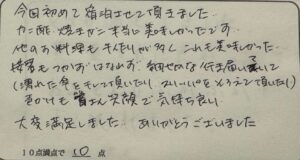 今回初めて宿泊させて頂きました。
カニ酢、焼きガニ本当に美味しかったです。
他のお料理も手作りが多く、これも美味しかった。
接客もつかずはなれず、細やかな行き届いて
(濡れた傘をそして頂いたり、スリッパをそろえて頂いたり)
誰もが皆さん笑顔で気持ち良い
大変満足しました。ありがとうございました
10点満点で 10 点